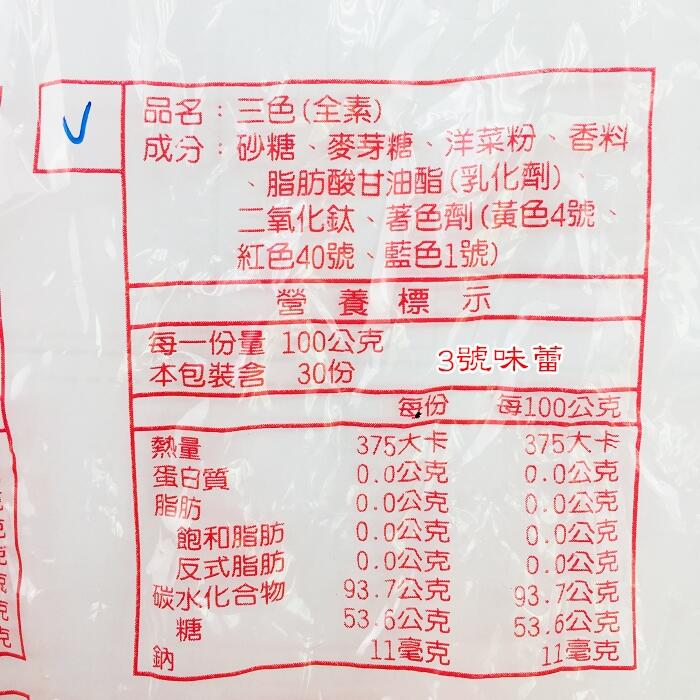 V
品名：三色(全素)
成分：砂糖、麥芽糖、洋菜粉、香料
、脂肪酸甘油酯(乳化劑)、
二氧化鈦、著色劑(黃色4號、
紅色40號、藍色1號)
營養標示
每一份量 100公克
本包裝含 30份
3號味蕾
每份 每100公克
熱量 375大卡 375大卡
蛋白質 0.0公克 0.0公克
脂肪 0.0公克 0.0公克
飽和脂肪 0.0公克 0.0公克
反式脂肪 0.0公克 0.0公克
碳水化合物 93.7公克 93.7公克
糖 53.6公克 53.6公克
鈉 11毫克 11毫克